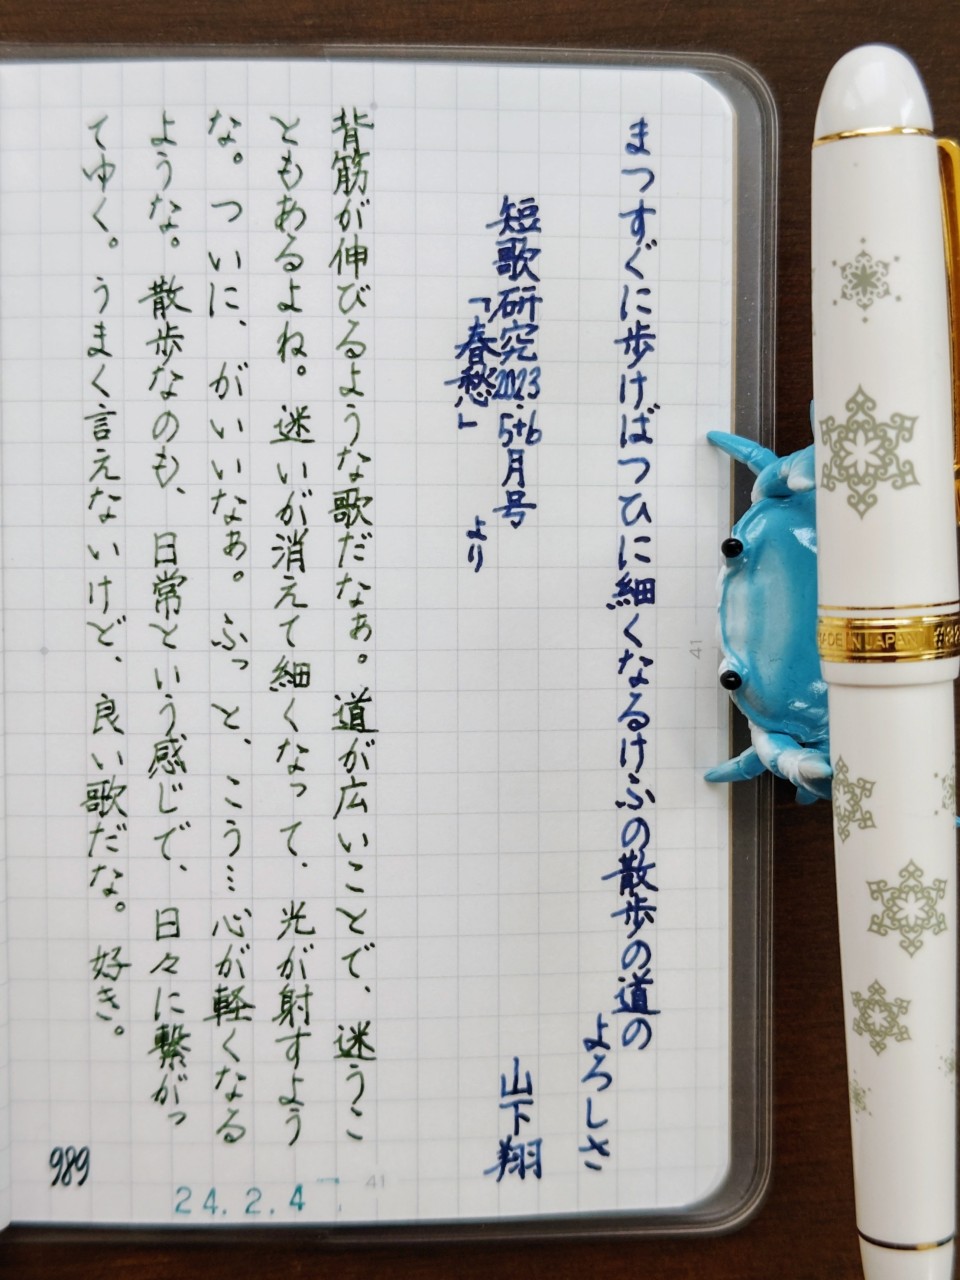 まつすぐに歩けばつひに細くなるけふの散歩の道の
よろしさ
短歌研究2023.5+6月号
「春愁」より
山下翔
背筋が伸びるような歌だなぁ。道が広いことで、迷うこ
ともあるよね。迷いが消えて細くなって、光が射すよう
な。ついに、がいいなぁ。ふっと、こう…心が軽くなる
ような。散歩なのも、日常という感じで、日々に繋がっ
てゆく。うまく言えないけど、良い歌だな。好き。
989
24.2.4
41
41
MADE IN JAPAN